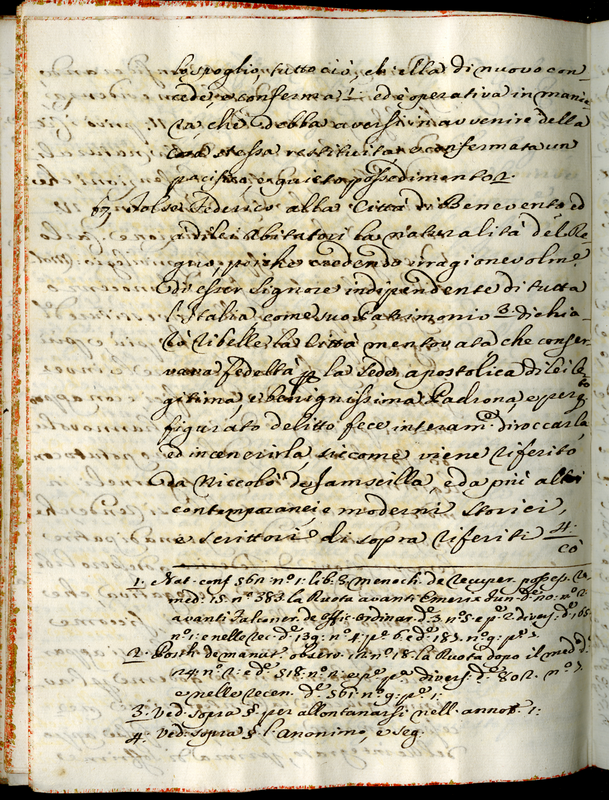 lo spoglio, tutto ciò, ch' ella di nuovo con-
cede, e conferma 1. ed è operativa in manie
ra, che debba aversi in avvenire della
stessa restituita, e confermata un
pacifico, e quieto possedimento 2.
Tolse Federico alla Città di Benevento ed
a di lei Abitatori la naturalità del Re-
gno, poiche credendo irragionevolm.e
di esser Signore indipendente di tutta
l'Italia come suo Patrimonio 3. dichia-
rò ribelle la Città mentovata che conser
vava fedeltà p la Sede apostolica di lei le
gitima, e benignissima Padrona, e per
figurato delitto fece interam.e diroccarla,
ed incenerirla, siccome viene riferito
da Niccolò de Jamscilla, e da più altri
contemporanei e moderni Storici,
e scrittori di sopra riferiti 4.
cò
1. Nat. cons. 561 n.º 1. lib. 3 Menoch. de recuper. possess. re
med. 15. n.º 383. la Ruota avanti Emerix Iun. d. 20. n.º 2.
avanti Falconer. de offic. ordinar. d. 3 n.º 5 e p. 2 divers. d. 165
n.º 1. e nelle rec. d. 139. n.º 4. p. 6. e d. 187. n.º 9. p. 7.
2. Posth. de manut. observ. n.º 18. la Ruota dopo il med.
24 n.º 2. e d. 518. n.º 2. e p. divers. d. 802. n.º 7.
e nelle recen. d. 561 n.º 9. p. 1.
3. Ved. sopra § per allontanarsi nell. annot. 1.
4. Ved. sopra § l'Anonimo, e seg.